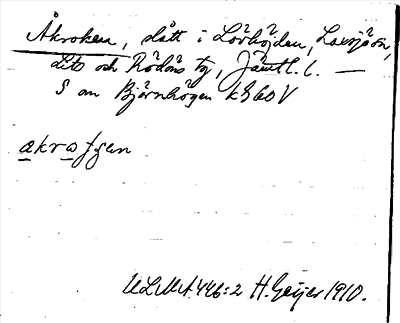 Åkroken, slått i Lövhöjden, Laxsjöön,
Lits och Rödöns tg, Jämtl. l. —
S om Björnhögen k360V
akrofȷen
ULMA 446:2 H. Geijer 1910.